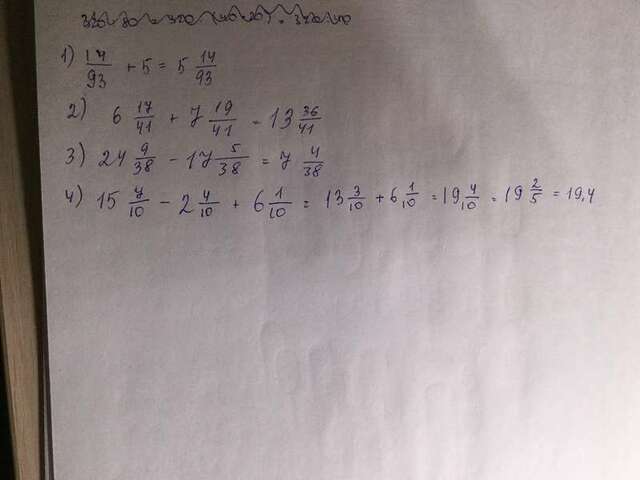 1) 14/93 + 5 = 5 14/93
2) 6 17/41 + 7 19/41 = 13 36/41
3) 24 9/38 - 17 5/38 = 7 4/38
4) 15 7/10 - 2 4/10 + 6 1/10 = 13 3/10 + 6 1/10 = 19 4/10 = 19 2/5 = 19,4